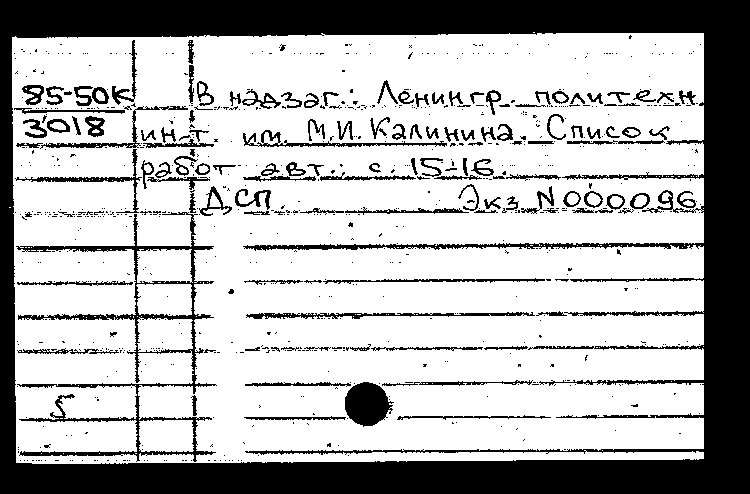 85-50К В надзаг.: Ленингр. политехн.
3018 ин-т. им. М.И. Калинина. Список
работ авт.: с. 15-16.
ДСП. Экз N000096.
5